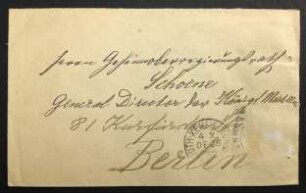 Herrn Geheimoberregierungsrath
Schoene
General Director der Königl Museen
81 Kurfürsten
Berlin